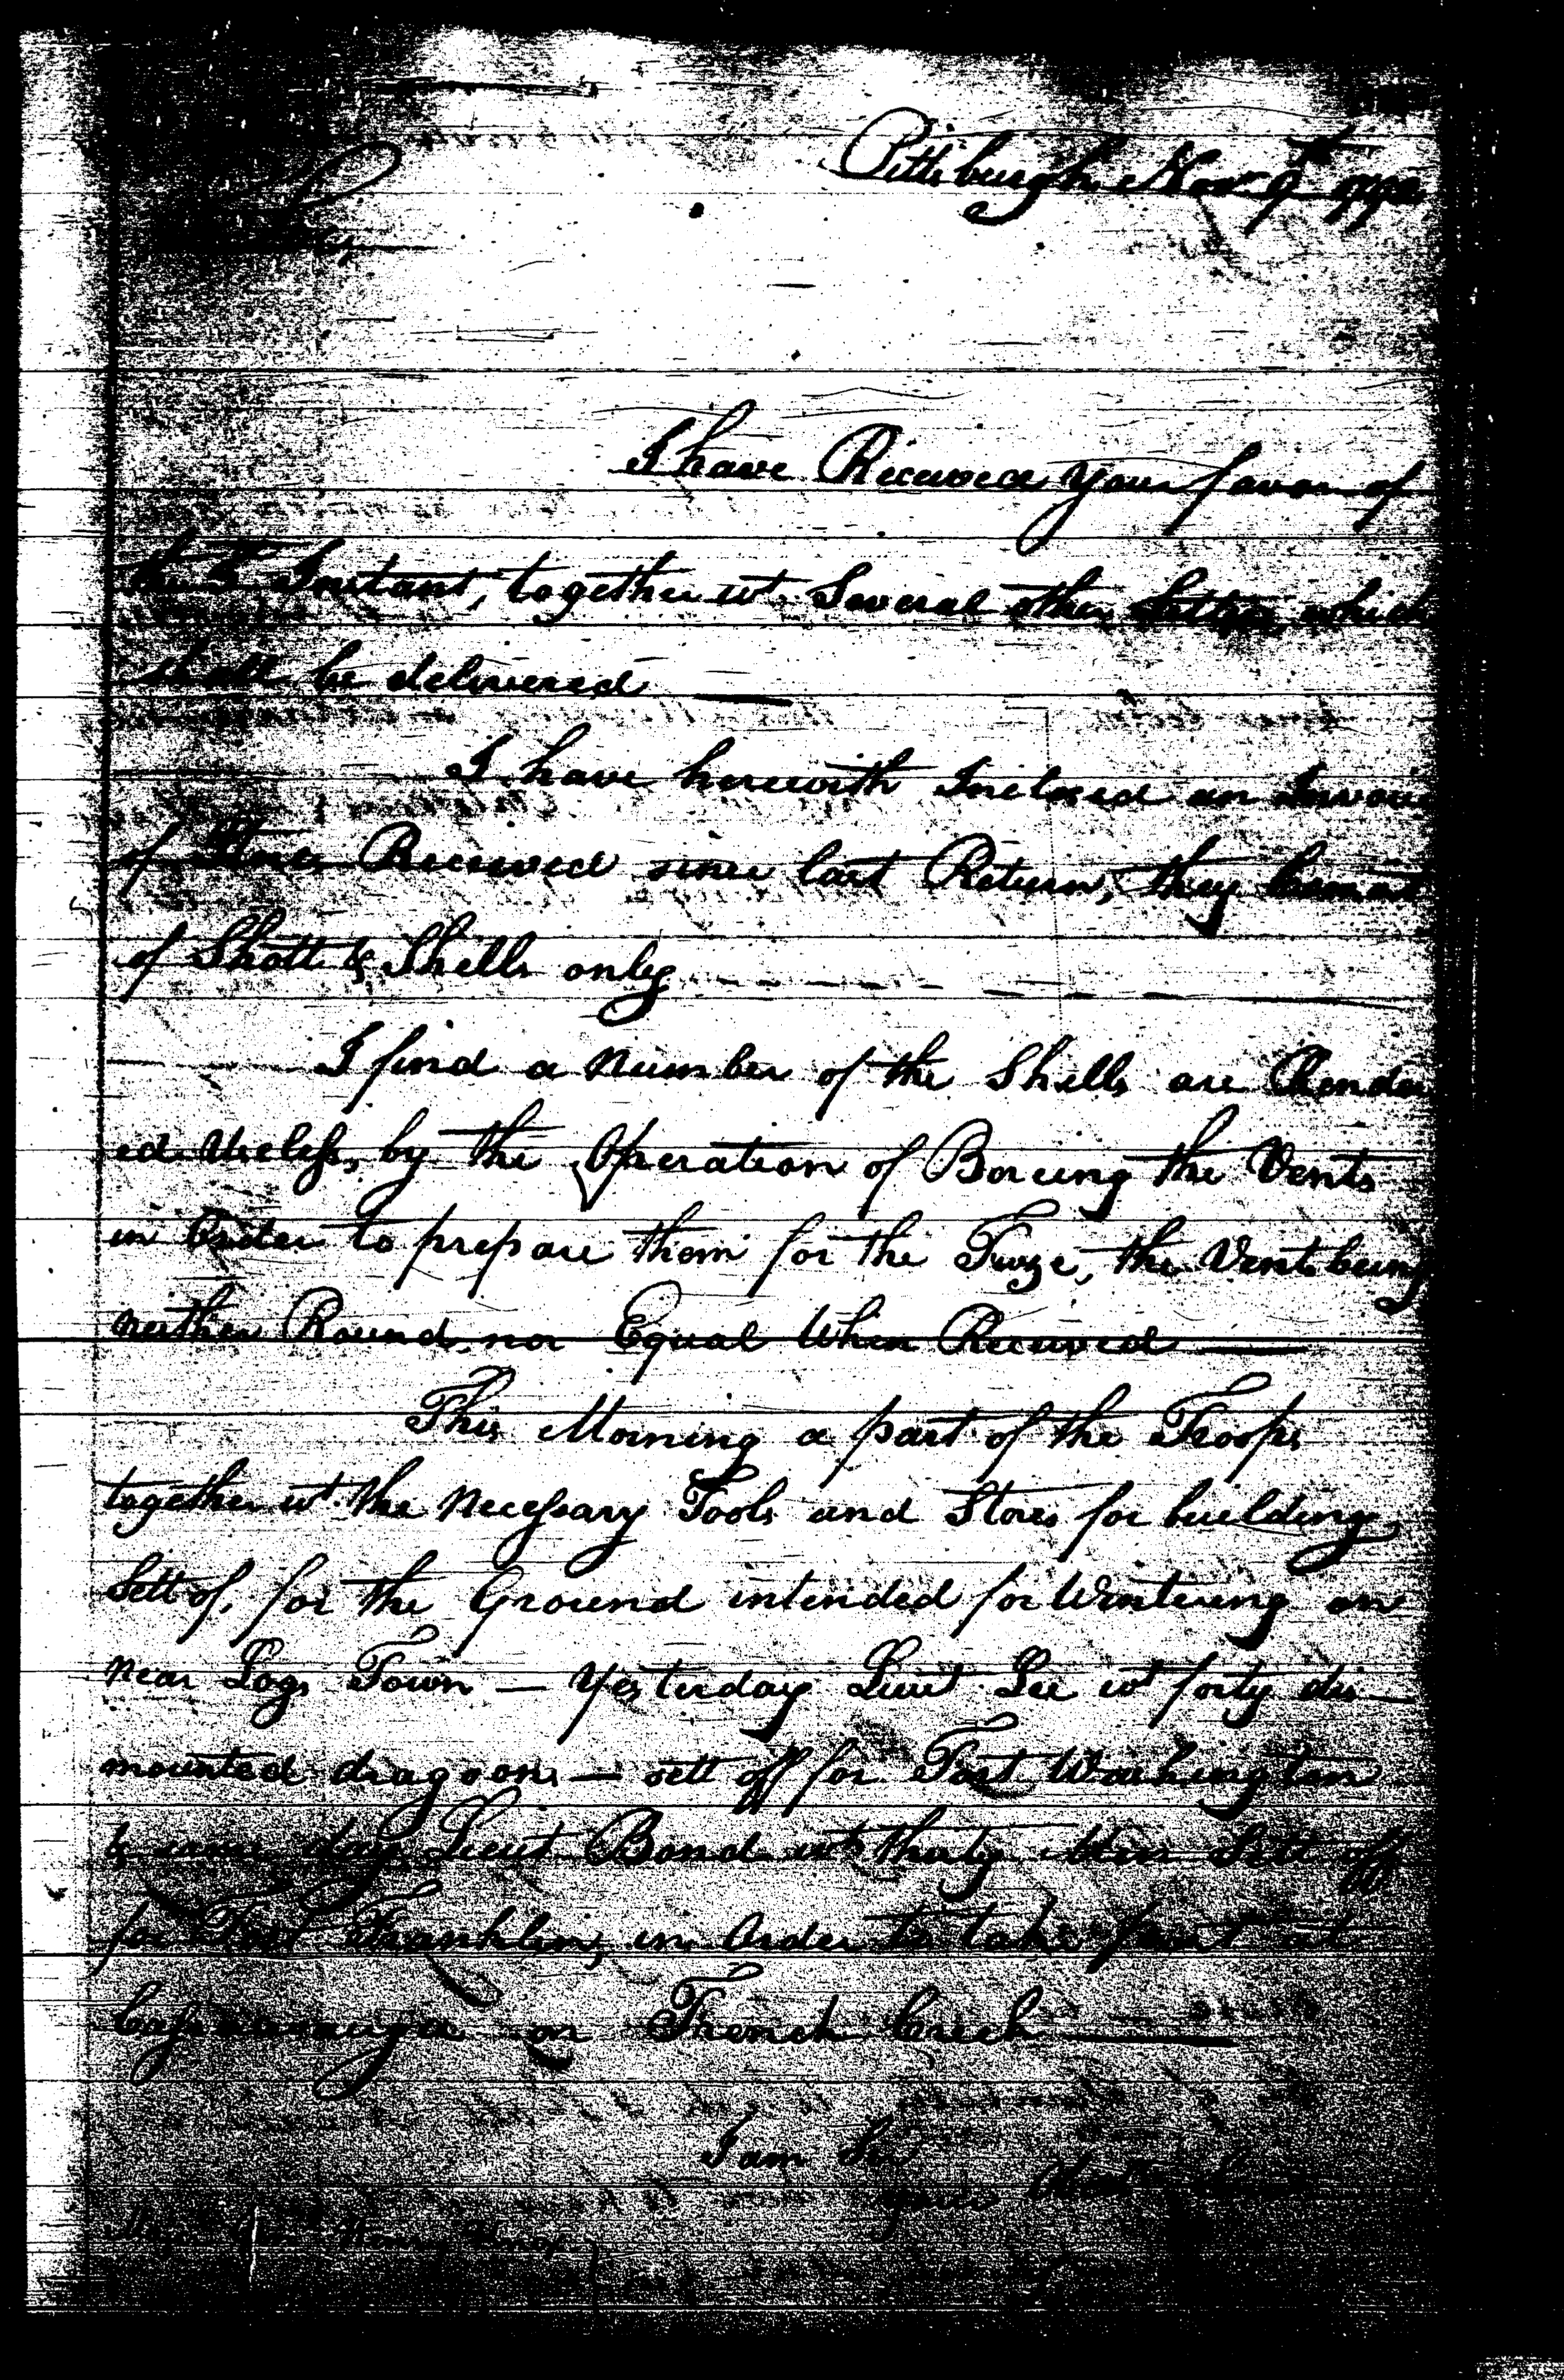 Pittsburgh Nov 9th 1792
Sir,
I have Received your favor of
the Instant, together wt. Several other Letters, which
shall be delivered
I have herewith Inclosed an Invoice
of Stores Received since last Return, they
of Shott & Shells only
I find a number of the Shells are Render
ed useless, by the Operation of Boreing the Vents
in Order to prepare them for the Fuze, the Vents being
neither Round, nor Equal When Received
This Morning a part of the Troops
together wt. the necessary Tools and Stores for building
Sett of, for the Ground intended for Wintering on
near Logs Town — Yesterday Lieut Lee wt forty dis—
mounted dragoons — sett off for Fort Washington
& same day Lieut Bond wt thirty Men Sett off
for Fort Franklin, in Order to take post at
on French Creek
I am Sir
yours
Majr. Genl. Henry Knox